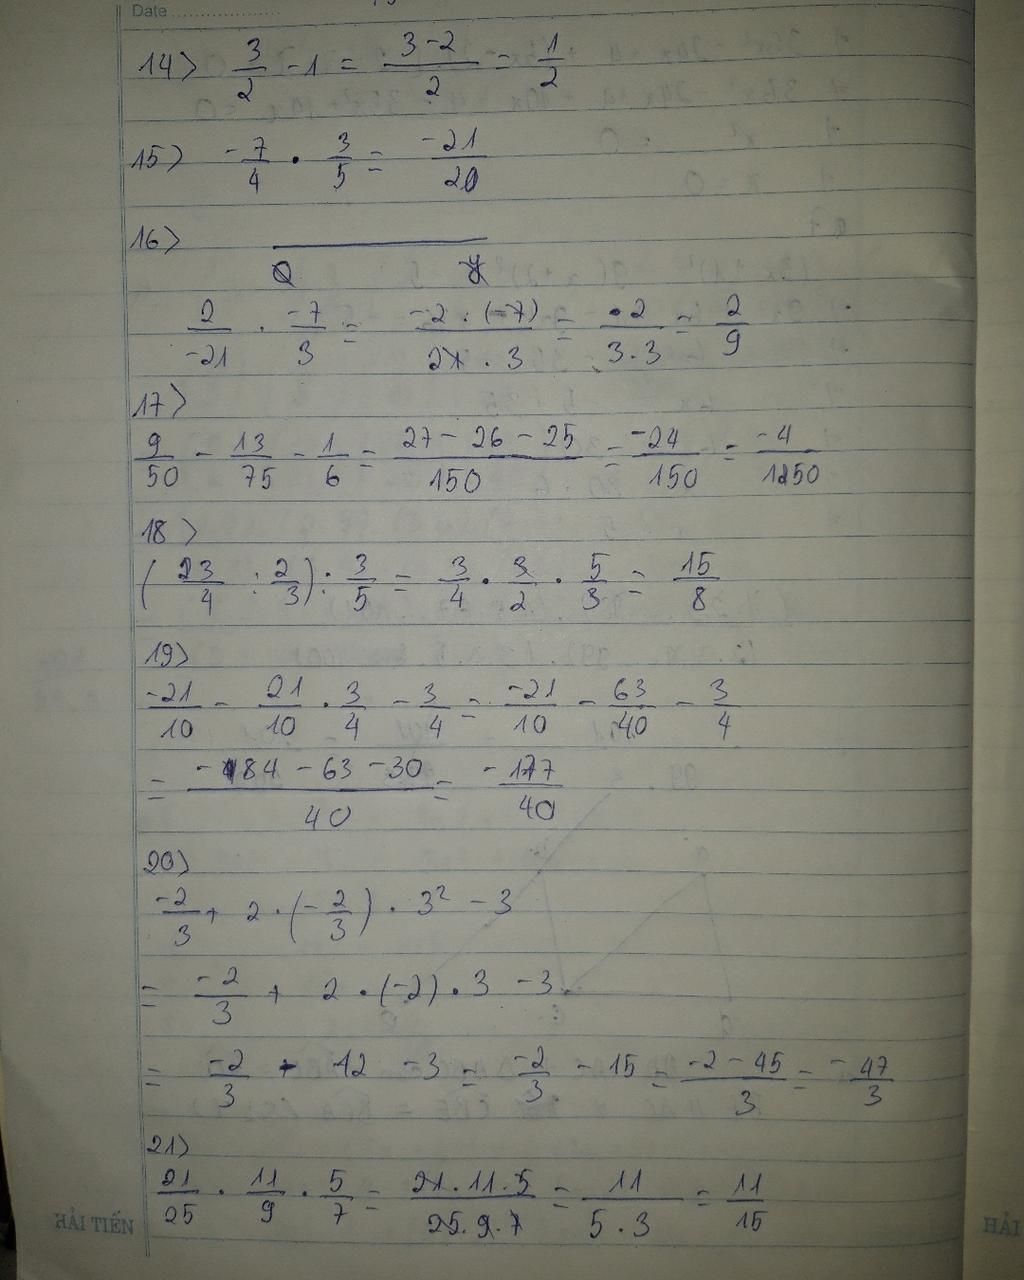 Date
14> 3/2 - 1 = 3-2/2 = 1/2
15> -7/4 . 3/5 = -21/20
16>
2/-21 . -7/3 = -2 . (-7)/21 . 3 = 2/3.3 = 2/9
17>
9/50 - 13/75 - 1/6 = 27 - 26 - 25/150 = -24/150 = -4/
18>
(3/4 : 2/3) : 3/5 = 3/4 . 3/2 . 5/3 = 15/8
19>
-21/10 - 21/10 . 3/4 - 3/4 = -21/10 - 63/40 - 3/4
= -84 - 63 - 30/40 = -177/40
20>
-2/3 + 2 . (-2/3) . 3² - 3
= -2/3 + 2 . (-2) . 3 - 3
= -2/3 - 12 - 3 = -2/3 - 15 = -2 - 45/3 = -47/3
21>
21/25 . 11/9 . 5/7 = 21 . 11 . 5/25 . 9 . 7 = 11/5 . 3 = 11/15
HẢI TIẾN HẢI